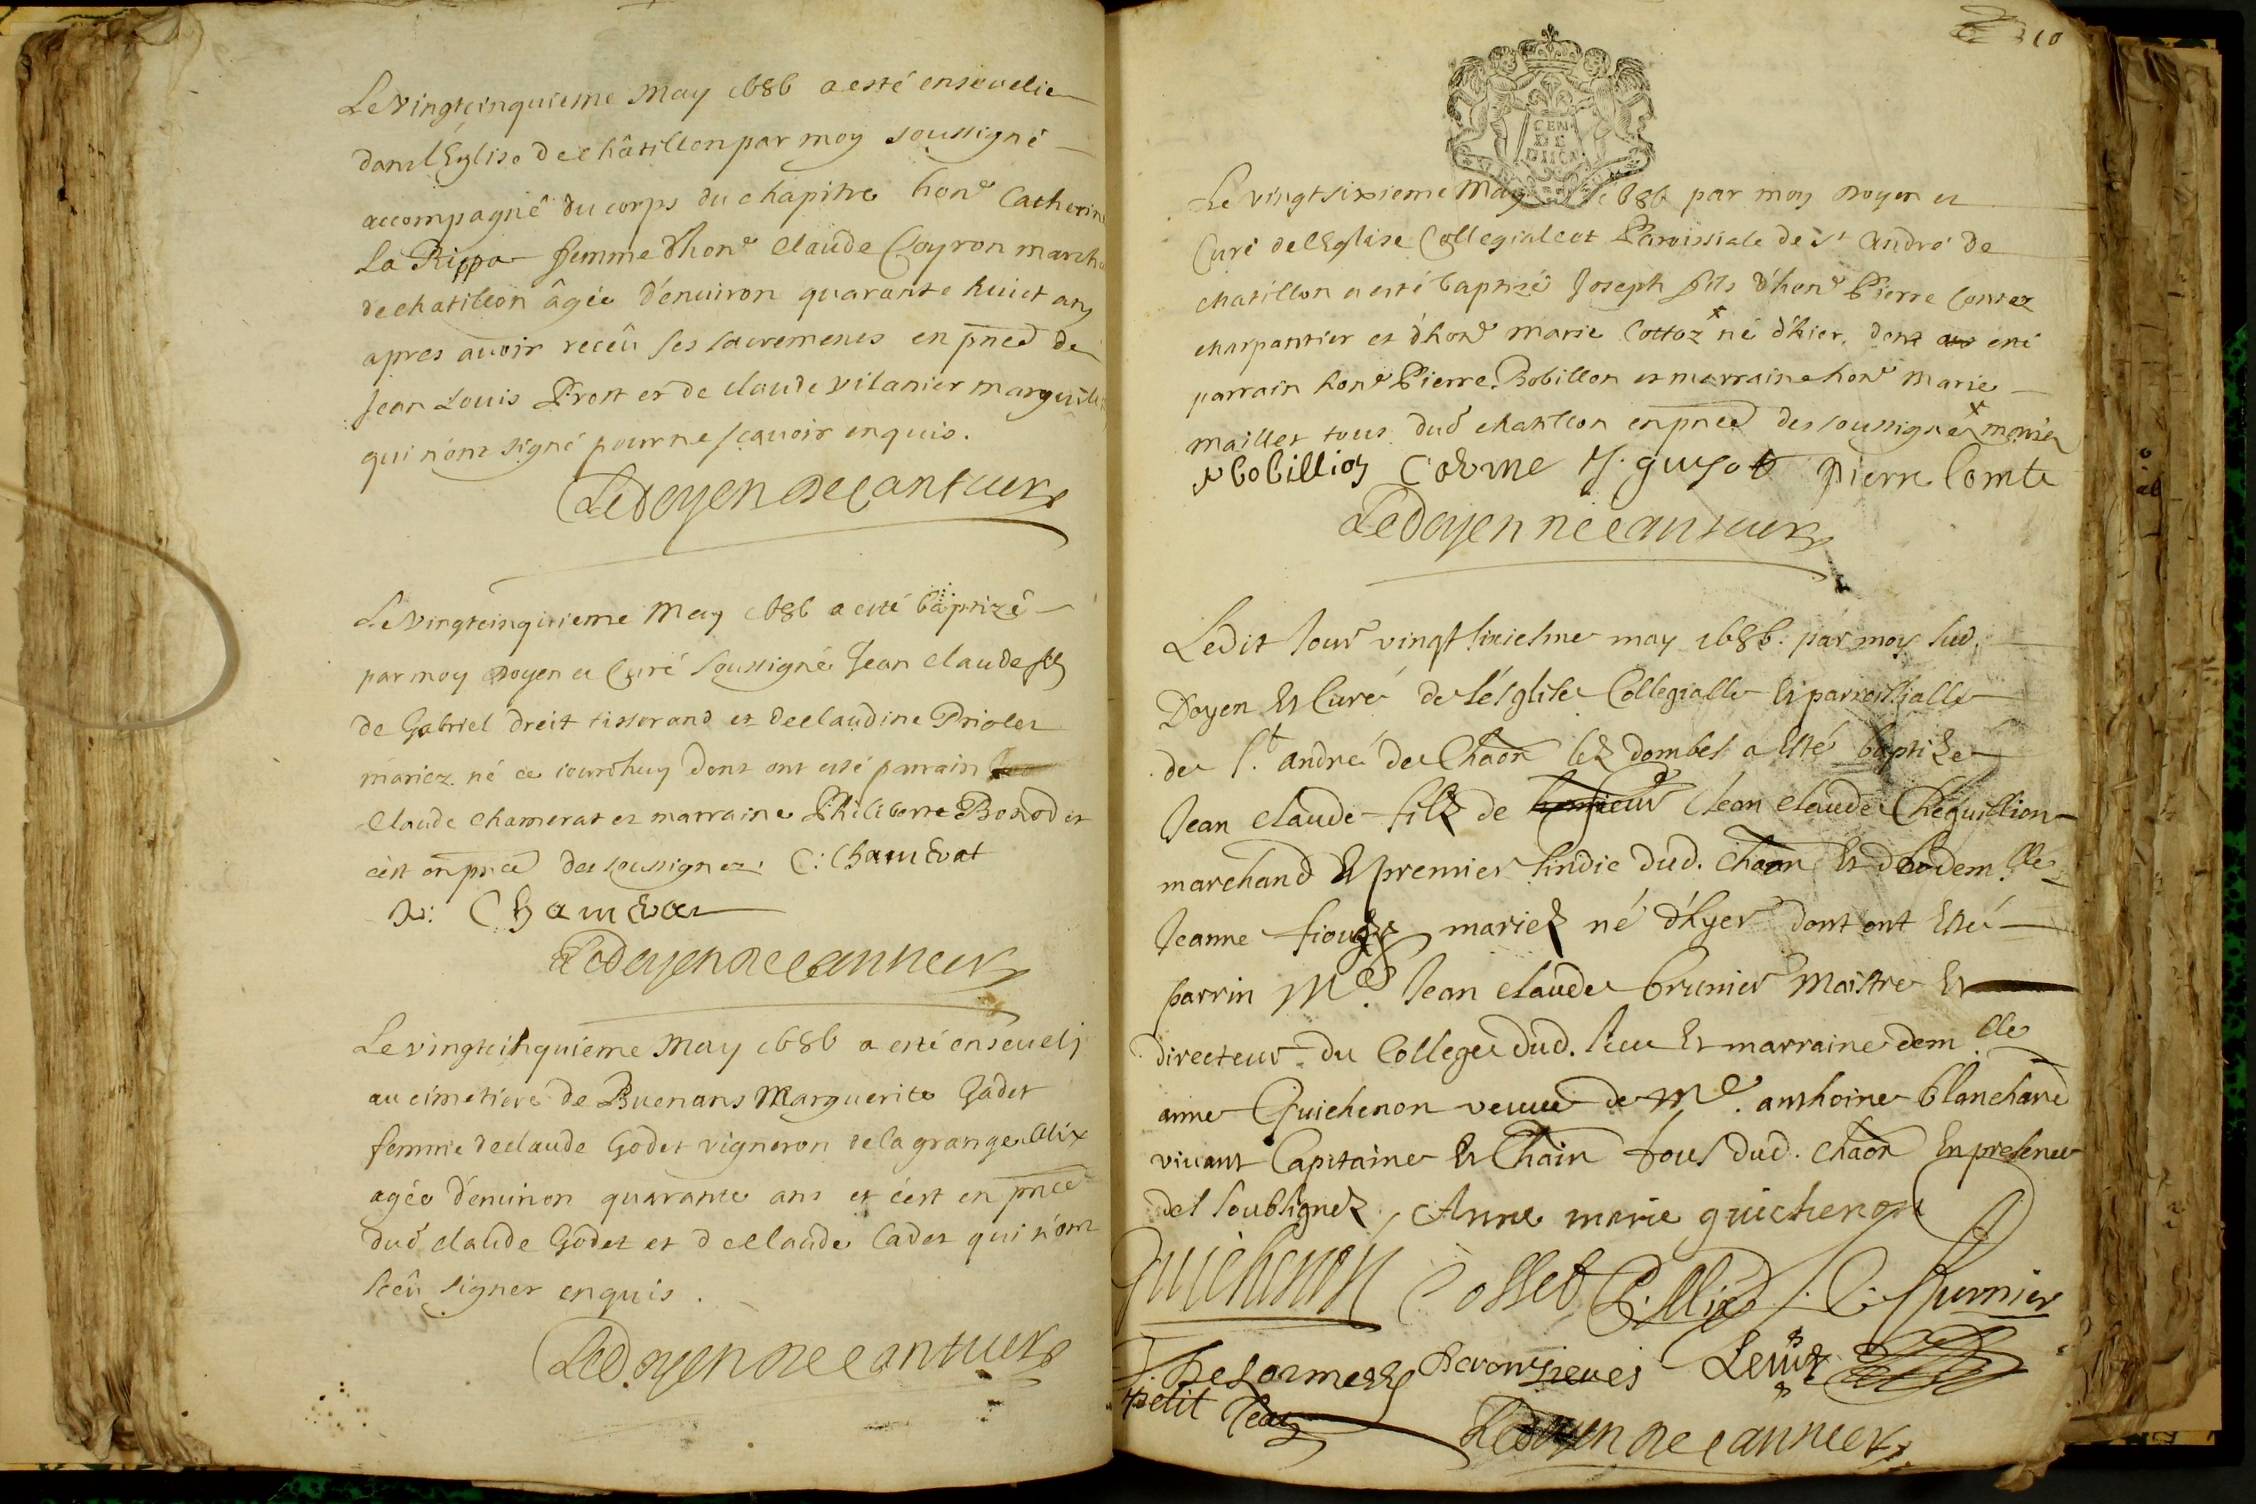 Le Vingtcinquieme May 1686 a esté ensevelie
dans l'Eglise de châtillon par moy soussigné
accompagné du corps du chapitre hon.e Catherin
La Rippa femme d'hon.e Claude Coyron march
de chatillon âgée d'environ quarante huict ans
apres auoir receû ses sacremens en pnce de
Jean Louis Prost et de claude vilanier marguill
qui n'ont signé pour ne scauoir enquis.
Le doyen
Le Vingtcinquieme May 1686 a esté baptizé
par moy Doyen et Curé soussigné Jean Claude fils
de Gabriel Droit tisserand et de claudine Prioles
mariez né ce iourdhuy dont ont esté parrain
Claude Chamerat et marraine Philiberte Bozod et
c'est en pnce des soussignez. C: Chamerat
Chamerat
Le doyen
Le vingtcinquieme May 1686 a esté enseueli
au cimetiere de Buenans Marguerite Gadet
femme de claude Godet vigneron de la grange Alix
agée d'enuiron quarante ans et c'est en pnce
dud claude Godet et de claude Cadet qui n'ont
sceû signer enquis.
Le Doyen
310
CEN
DE
Le vingtsixieme May 1686 par moy Doyen et
Curé de l'Eglise Collegiale et Paroissiale de St André de
chatillon a esté baptizé Joseph fils d'hon.e Pierre Contet
charpantier et d'hon.e Marie Cottoz né d'hier, dont esté
parrain hon.e Pierre Bobillon et marraine hon.e Marie
Maillet tous dud chatillon en pnce des soussignez mariez
Bobillion Cosme guyot pierre Comte
Le Doyen
Ledit Jour vingt sixiesme may 1686. par moy sud.
Doyen Et Curé de L'Esglise Collegialle Et parroissialle
de St. andré de Chãon lez dombes a Esté baptizé
Jean claude filz de Jean claude Cheguillion
marchand Et premier sindic dud. chãon Et de dem.lle
Jeanne mariez né d'hyer dont ont Esté
parrin Me. Jean claude brunier Maistre Et
directeur du College dud. lieu Et marraine dem.lle
anne Guichenon veuue de Me. anthoine blanchard
viuant Capitaine Et Chãin tous dud. chãon En presence
des soubsignez. Anne marie guichenon
Guichenon Cosset P. Alix J. C. brunier
Desormes
petit Jean
Le Doyen